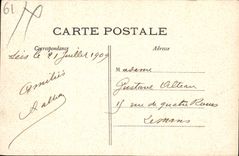 61
CARTE POSTALE
Correspondance
Adresse
le 21 Juillet 1909
Madame
Amitiés
Gustave
17 rue de quatre Roues
Le Mans